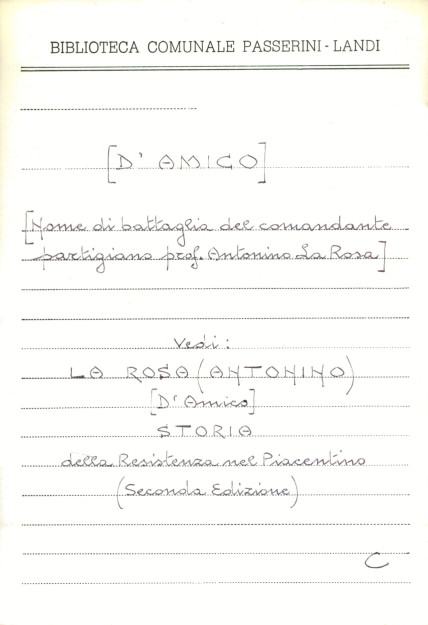 BIBLIOTECA COMUNALE PASSERINI-LANDI
[D' AMICO]
[Nome di battaglia del comandante
partigiano prof. Antonino La Rosa]
Vedi:
LA ROSA (ANTONINO)
[D'Amico]
STORIA
della Resistenza nel Piacentino
(Seconda Edizione)
C